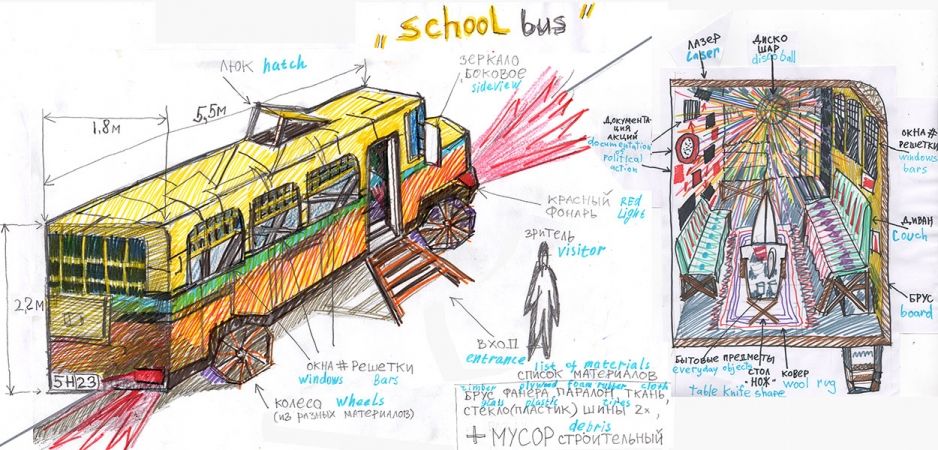 "school bus"
ЛЮК hatch
5,5м
1,8м
2,2м
ЗЕРКАЛО
БОКОВОЕ
sideview
КРАСНЫЙ
ФОНАРЬ
RED
Light
ЗРИТЕЛЬ
visitor
ВХОД
entrance
ОКНА#РЕШЕТКИ
windows Bars
КОЛЕСА wheels
(ИЗ РАЗНЫХ МАТЕРИАЛОВ)
5H23
list of materials
СПИСОК МАТЕРИАЛОВ
timber plywod foam rubber cloth
БРУС ФАНЕРА ПАРАЛОН ТКАНЬ,
glass plastic tires
СТЕКЛО(ПЛАСТИК) ШИНЫ 2х,
debris
+ МУСОР СТРОИТЕЛЬНЫЙ
ЛАЗЕР
Laser
ДИСКО
ШАР
disco ball
ДОКУМЕНТА-
ЦИЯ
АКЦИЙ
documentation
of
political
action
ОКНА#
РЕШЕТКИ
windows
bars
ДИВАН
Couch
БРУС
board
БЫТОВЫЕ ПРЕДМЕТЫ
everyday objects
СТОЛ
"НОЖ"
table knife shape
КОВЕР
wool rug